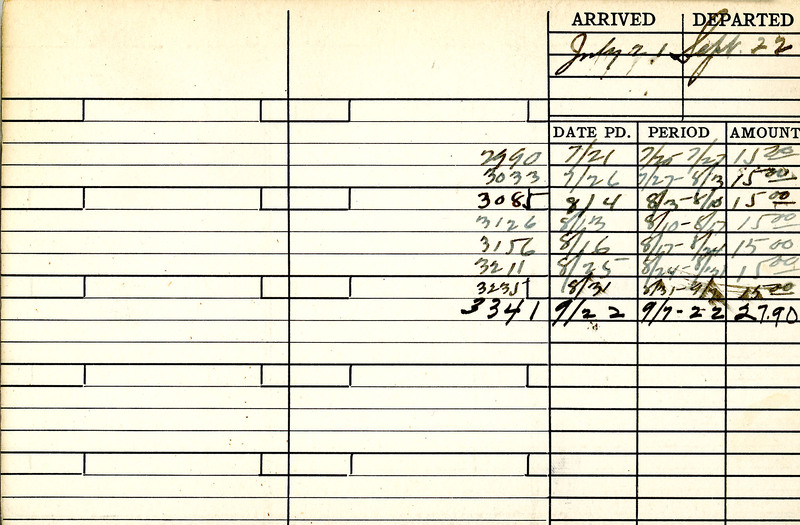 ARRIVED DEPARTED
July 21 Sept. 22
DATE PD. PERIOD AMOUNT
2990 7/21 7/20 7/27 15 00
3033 7/26 7/27 - 8/3 15 00
3085 8/4 8/3 - 8/10 15 00
3126 8/13 8/10 - 8/17 15 00
3156 8/16 8/17 - 8/24 15 00
3211 8/25 8/24 - 8/31 15 00
3235 8/31 8/31 - 15 00
3341 9/22 9/7 - 22 27.90